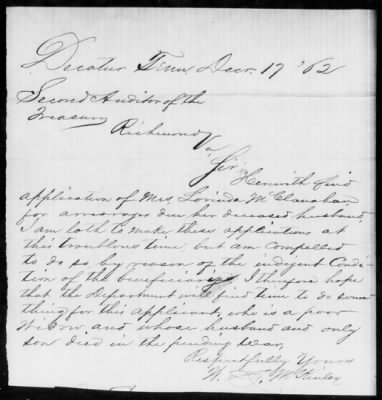 Decatur Tenn Decr. 17 '62
Second Auditor of the
Treasury
Richmond Va
Sir,
Herewith find
application of Mrs Lorinda McClanahan
for arrearages due her deceased husband.
I am loth to make these applications at
this troublous time but am compelled
to do so by reason of the indigent Condi-
tion of the beneficiary. I therefore hope
that the Department will find time to do some
thing for this applicant, who is a poor
Widow, and whose husband and only
son died in the pending War.
Respectfully Yours
McKinley